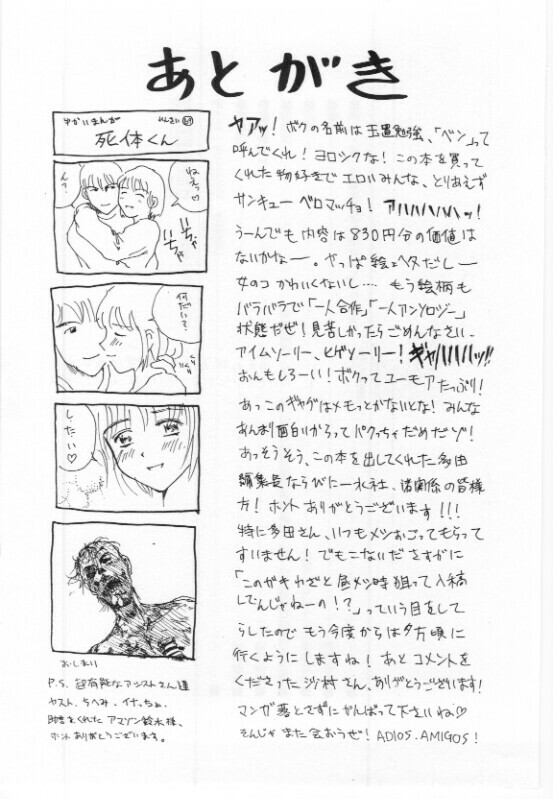 あとがき
ゆかいまんが
死体くん
ねぇ♡
ん?
いちゃ
いちゃ
何だい?
したい♡
おしまい
P.S. 超有能なアシストさん達
ヤスト、ちへみ、イナっち
助けてくれた アマゾン鈴木様、
ホント ありがとうございます。
ヤアッ! ボクの名前は玉置勉強、「ベン」って
呼んでくれ! ヨロシクな! この本を買って
くれた物好きでエロいみんな、とりあえず
サンキュー ベロマッチョ! アハハハハハッ!
うーんでも内容は830円分の価値は
ないかなー。やっぱ絵ヘタだしー
女のコ かわいくないし…… もう絵柄も
バラバラで「一人合作」「一人アンソロジー」
状態だぜ! 見苦しかったらごめんなさい、
アイムソーリー、ヒゲソーリー! ギャハハハハッ!!
おんもしろーい! ボクってユーモアたっぷり!
あっこのギャグはメモっとかないとな! みんな
あんまり面白いからってパクっちゃだめだゾ!
あっそうそう、この本を出してくれた多田
編集長ならびに一水社、諸関係の皆様
方! ホント ありがとうございます!!!
特に多田さん、いつもメシおごってもらって
すいません! でもこないださすがに
「このガキわざと昼メシ時狙って入稿
してんじゃねーの!?」っていう目をして
らしたので もう今度からは夕方頃に
行くようにしますね! あと コメントを
くださった 村さん、ありがとうございます!
マンガ落とさずにがんばって下さいね♡
そんじゃ また会おうぜ! ADIOS. AMIGOS!